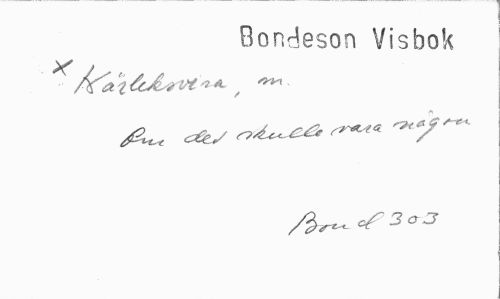 Bondeson Visbok
x Kärleksvisa, m.
Om det skulle vara någon
Bond 303